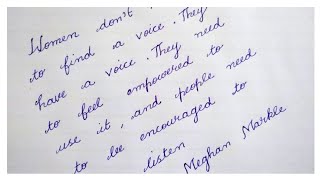 Women don't
to find a voice. They
have a voice. They need
to feel empowered to
use it, and people need
to be encouraged to
listen
Meghan Markle